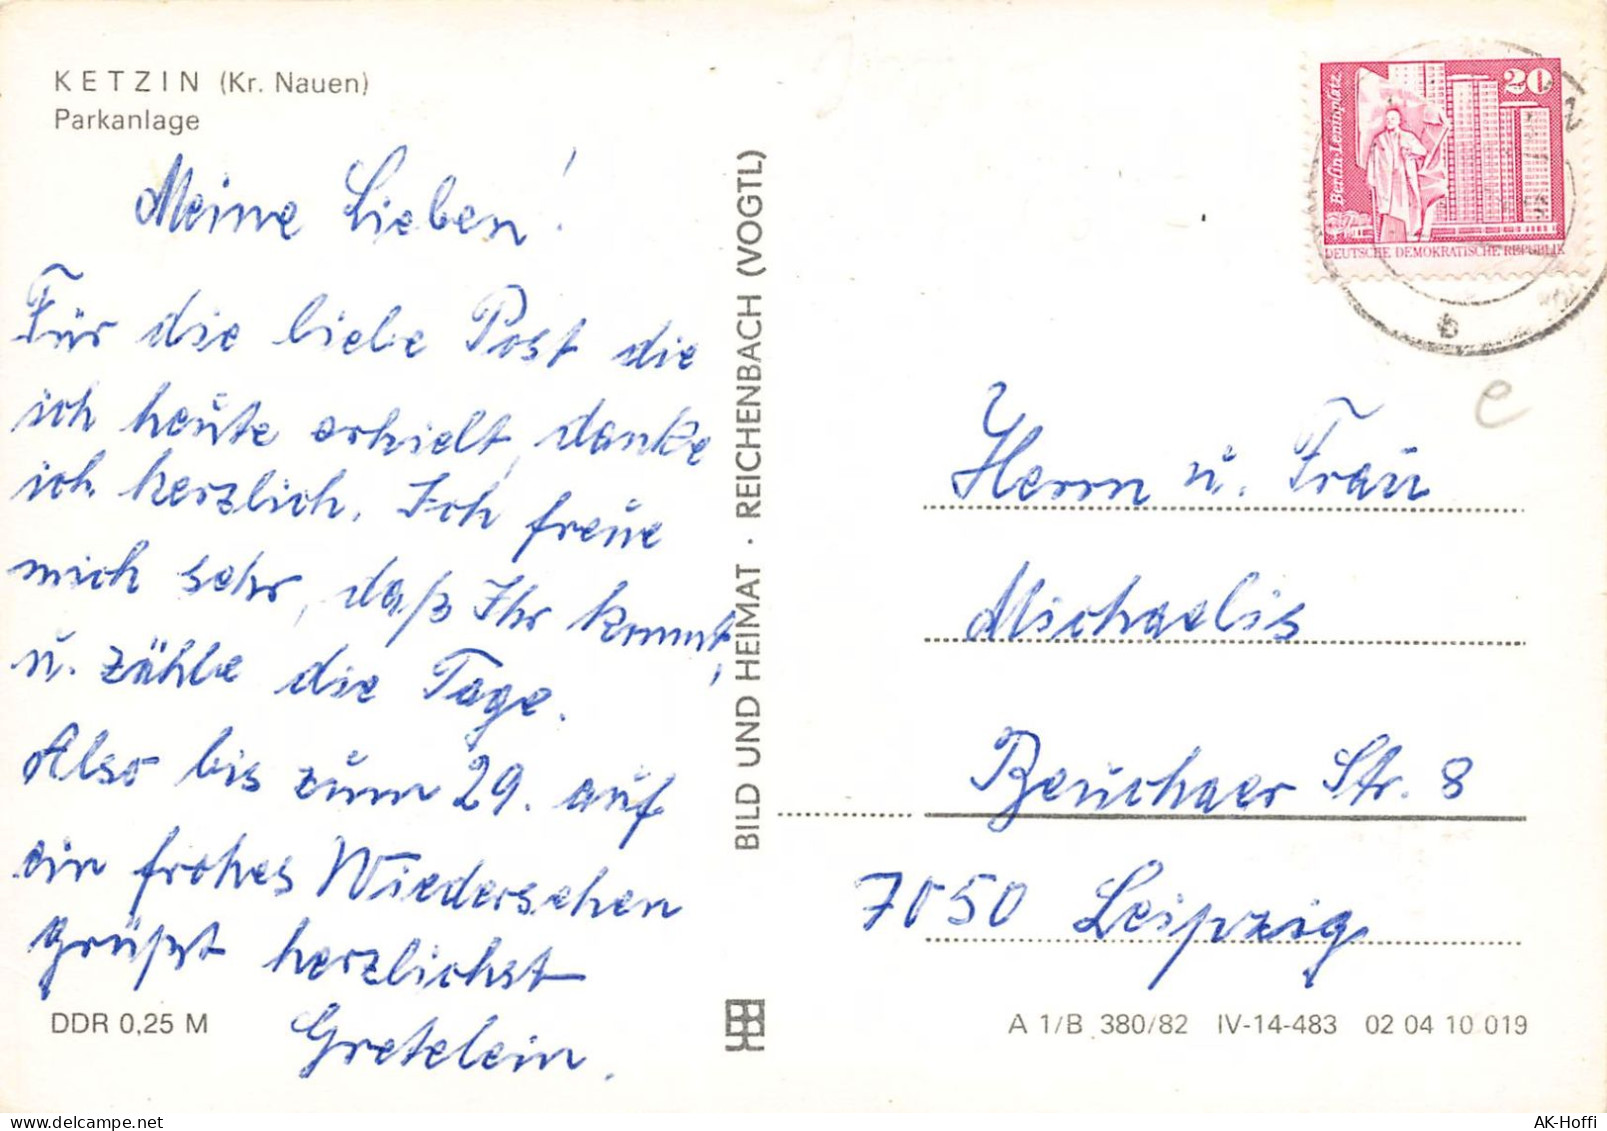 KETZIN (Kr. Nauen)
Parkanlage
Meine Lieben!
Für die liebe Post die
ich heute erhielt, danke
ich herzlich. Ich freue
mich sehr, daß Ihr kommt,
u. zähle die Tage.
Also bis zum 29. auf
ein frohes Wiedersehen
grüßt herzlichst
Gretelein.
DDR 0,25 M
BILD UND HEIMAT · REICHENBACH (VOGTL)
Berlin-Leninplatz
20
DEUTSCHE DEMOKRATISCHE REPUBLIK
b
e
Herrn u. Frau
Michaelis
Beuchaer Str. 8
7050 Leipzig
A 1/B 380/82 IV-14-483 02 04 10 019
AK-Hoffi